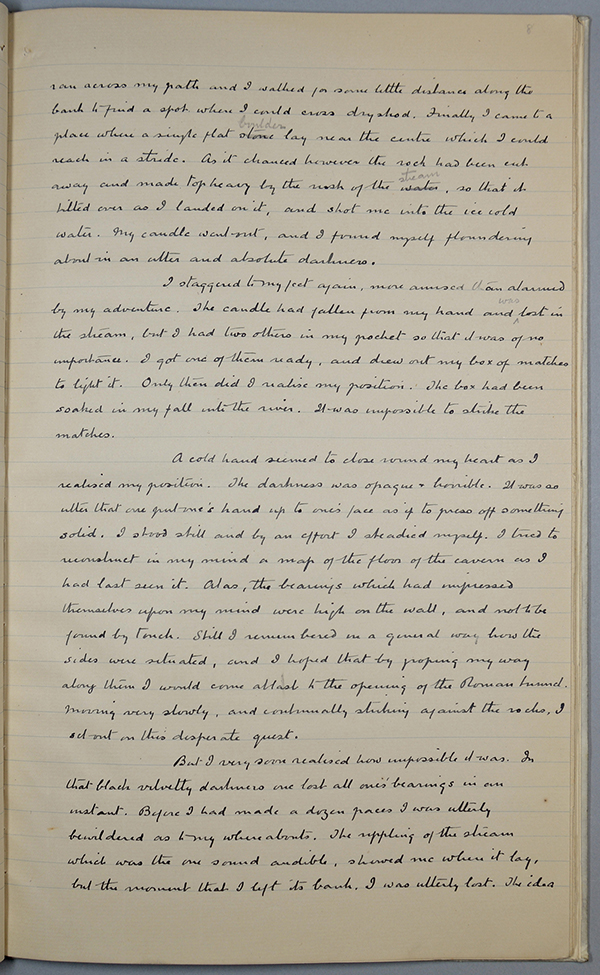 8
ran across my path and I walked for some little distance along the
bank to find a spot where I could cross dryshod. Finally I came to a
boulder
place where a single flat stone lay near the centre which I could
reach in a stride. As it chanced however the rock had been cut
stream
away and made topheavy by the rush of the water, so that it
tilted over as I landed on it, and shot me into the ice cold
water. My candle went out, and I found myself floundering
about in an utter and absolute darkness.
I staggered to my feet again, more amused than alarmed
was
by my adventure. The candle had fallen from my hand and lost in
the stream, but I had two others in my pocket so that it was of no
importance. I got one of them ready, and drew out my box of matches
to light it. Only then did I realise my position. The box had been
soaked in my fall into the river. It was impossible to strike the
matches.
A cold hand seemed to close round my heart as I
realised my position. The darkness was opaque + horrible. It was so
utter that one put one's hand up to one's face as if to press off something
solid. I stood still and by an effort I steadied myself. I tried to
reconstruct in my mind a map of the floor of the cavern as I
had last seen it. Alas, the bearings which had impressed
themselves upon my mind were high on the wall, and not to be
found by touch. Still I remembered in a general way how the
sides were situated, and I hoped that by groping my way
along them I would come at last to the opening of the Roman tunnel.
Moving very slowly, and continually striking against the rocks, I
set out on this desperate quest.
But I very soon realised how impossible it was. In
that black velvetty darkness one lost all one's bearings in an
instant. Before I had made a dozen paces I was utterly
bewildered as to my whereabouts. The rippling of the stream
which was the one sound audible, showed me where it lay,
but the moment that I left its bank, I was utterly lost. The idea